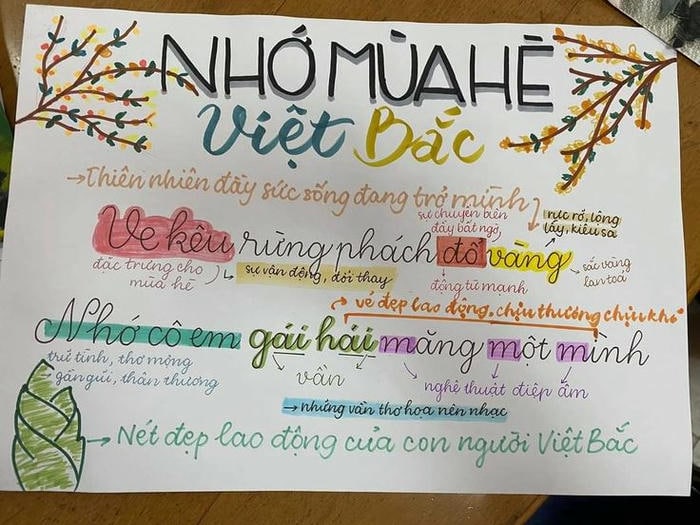 NHỚ MÙA HÈ
Việt Bắc
→ Thiên nhiên đầy sức sống đang trở mình
sự chuyển biến
đầy bất ngờ,
rực rỡ, lộng
lẫy, kiêu sa
Ve kêu rừng phách đổ vàng
đặc trưng cho
mùa hè
sự vận động, đổi thay
động từ mạnh
sắc vàng
lan toả
→ vẻ đẹp lao động, chịu thương chịu khó
Nhớ cô em gái hái măng một mình
trữ tình, thơ mộng
gần gũi, thân thương
vần
nghệ thuật điệp âm
→ những vần thơ hoạ nên nhạc
→ Nét đẹp lao động của con người Việt Bắc